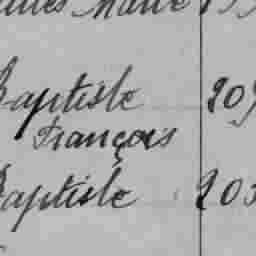 Marie
Baptiste 209
François
Baptiste 203